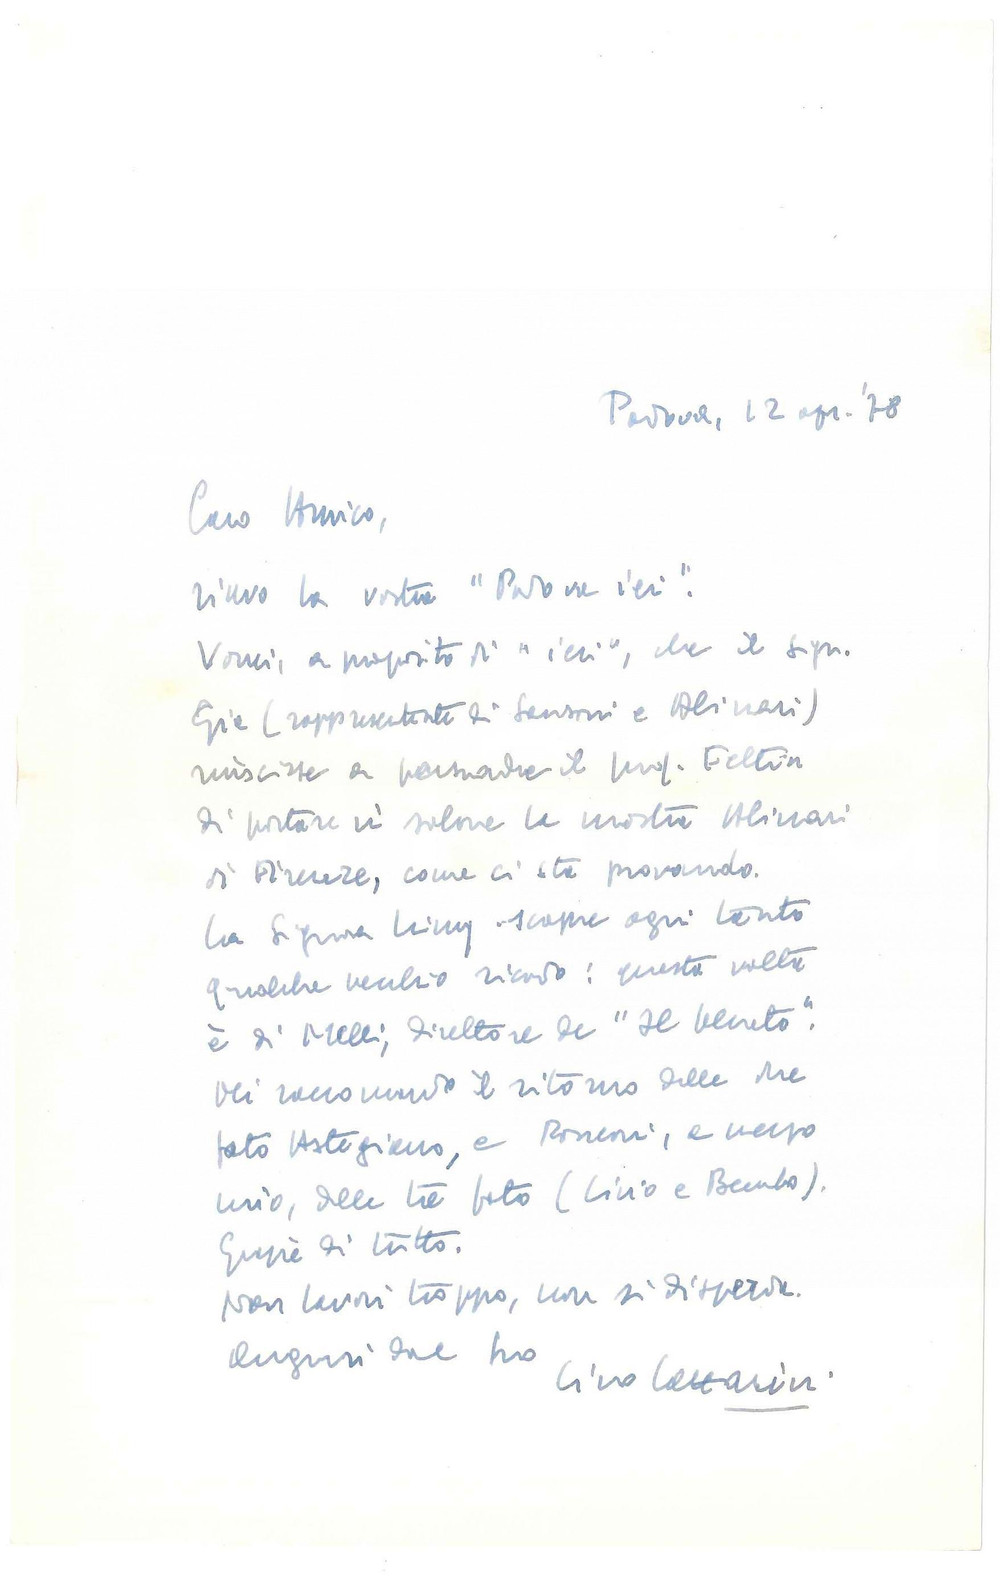 Padova, 12 apr. '78
Caro Amico,
rinvio la vostra "Padova ieri".
Vorrei, a proposito di "ieri", che il Sign.
(rappresentante di Sansoni e Alinari)
riuscisse a persuadere il prof. Feltrin
di portare in salone la mostra Alinari
di Firenze, come ci sta provando.
La Signora scopre ogni tanto
qualche vecchio ricordo: questa volta
è di Melli, direttore de "Il Veneto".
Mi raccomando il ritorno delle due
foto Astegiano, e Ronconi, a mezzo
mio, delle tre foto (Livio e Bembo).
Grazie di tutto.
Non lavori troppo, non si disperda.
Auguri dal Suo